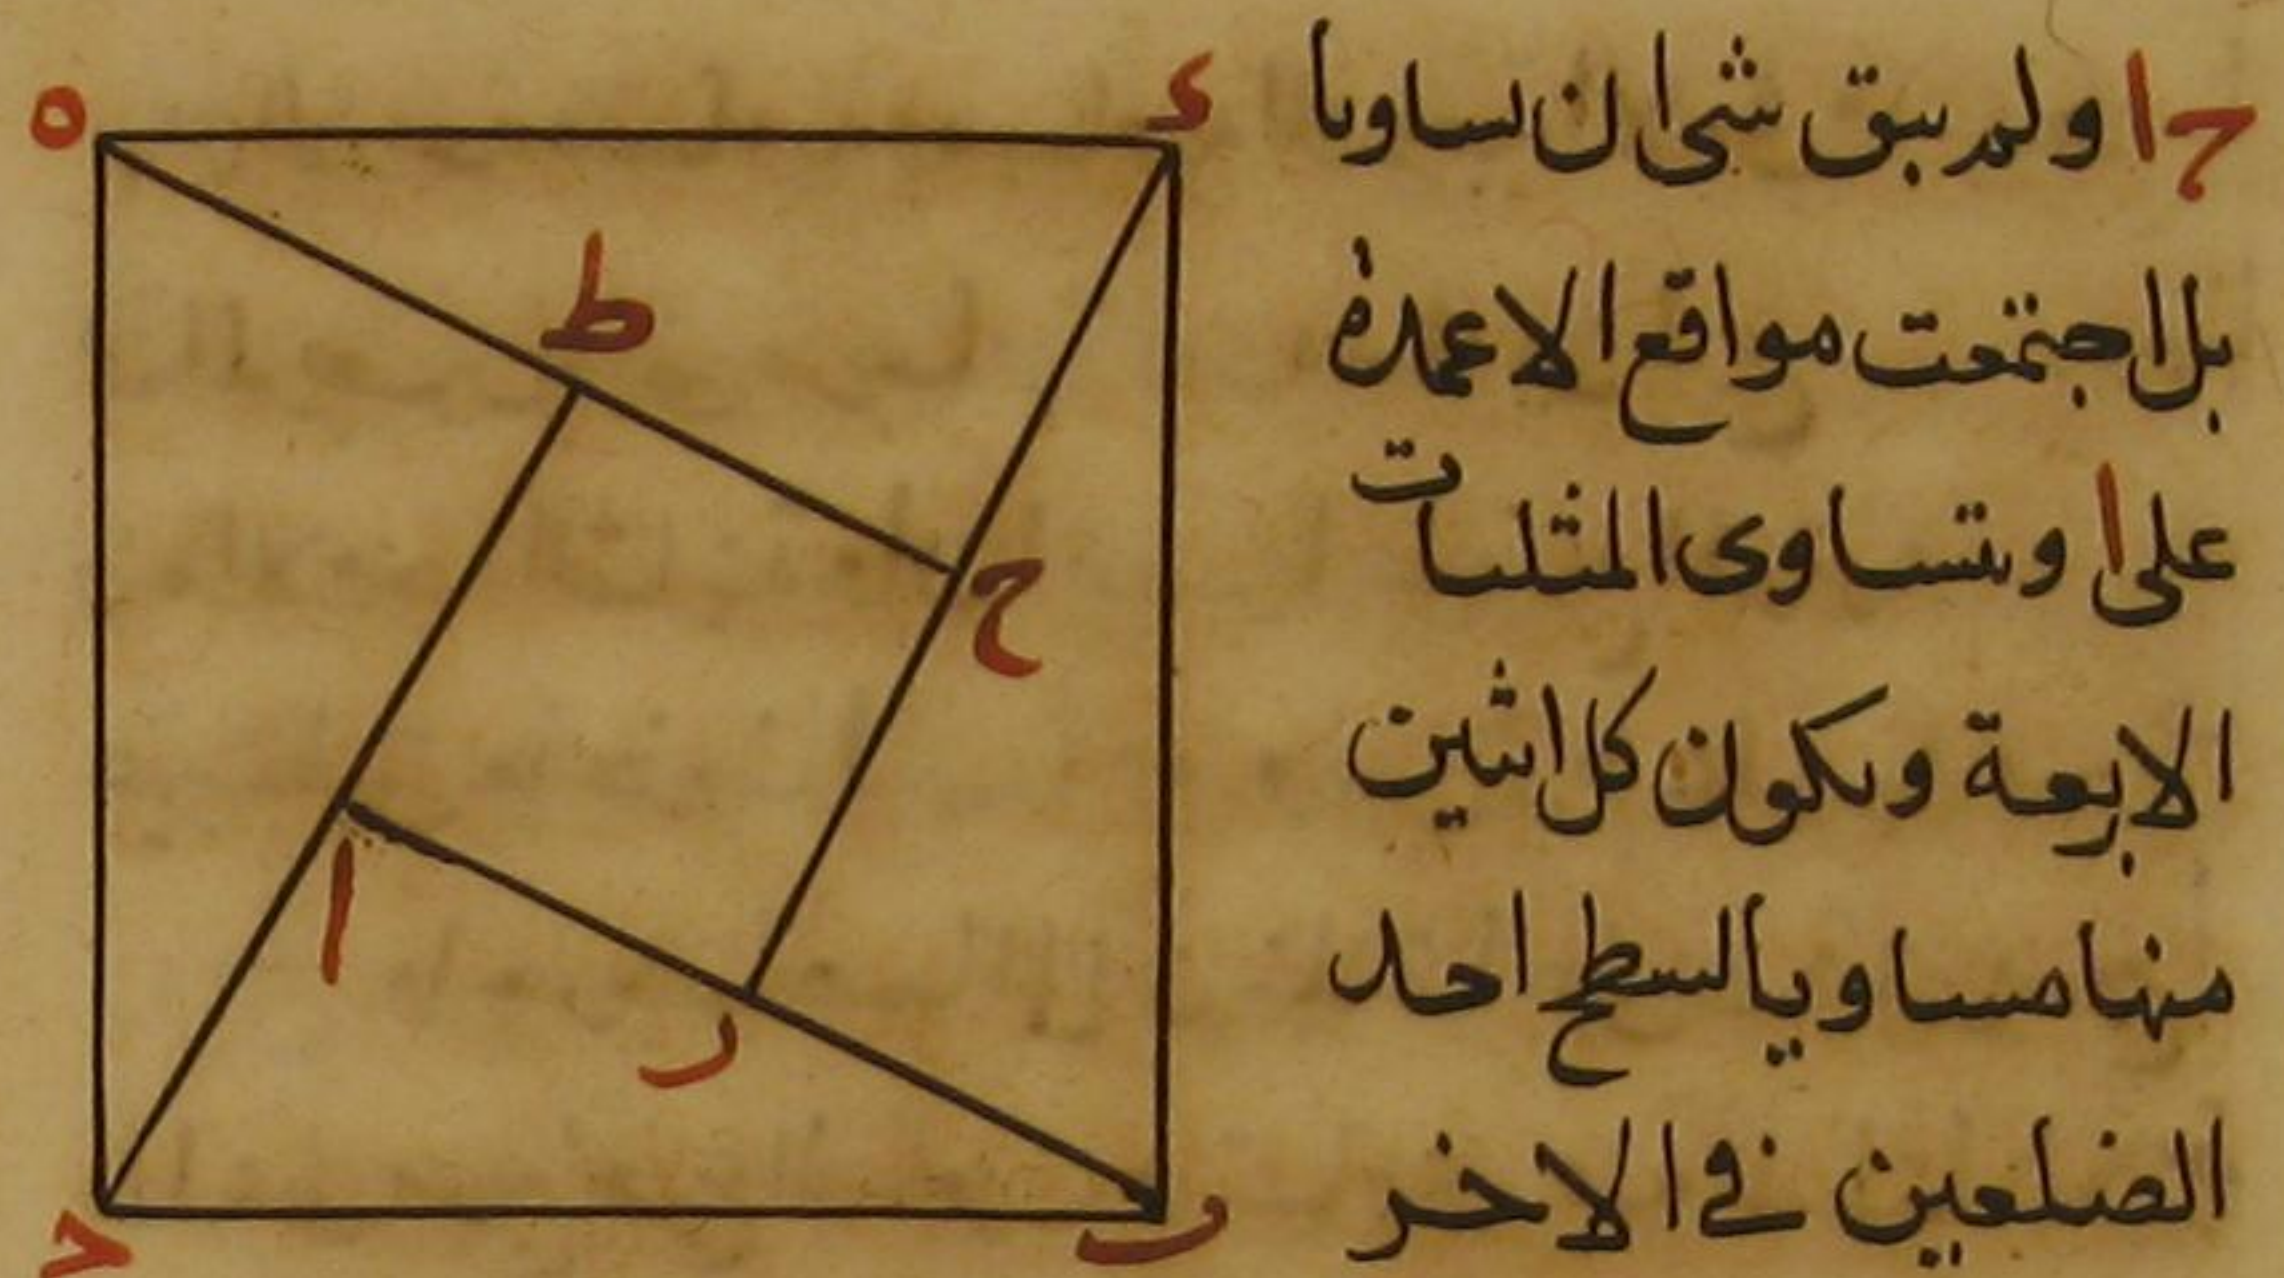 حا ولم يبق شي ان تساويا
بل اجتمعت مواقع الاعمدة
على ا وتتساوى المثلثات
الاربعة ويكون كل اثنين
منها مساويا لسطح احد
الضلعين في الاخر
ه
د
ط
ح
ا
ر
ح
ب